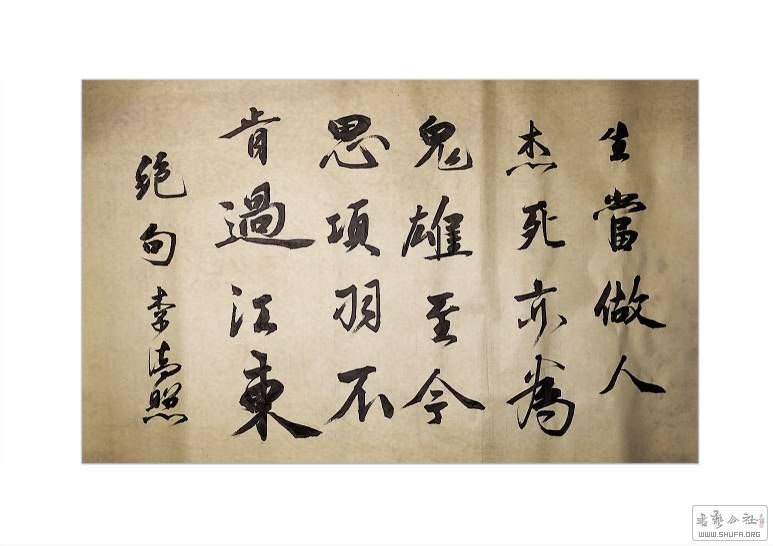 生當做人
杰死亦為
鬼雄至今
思項羽不
肯過江東
绝句李清照
WWW.SHUFA.ORG